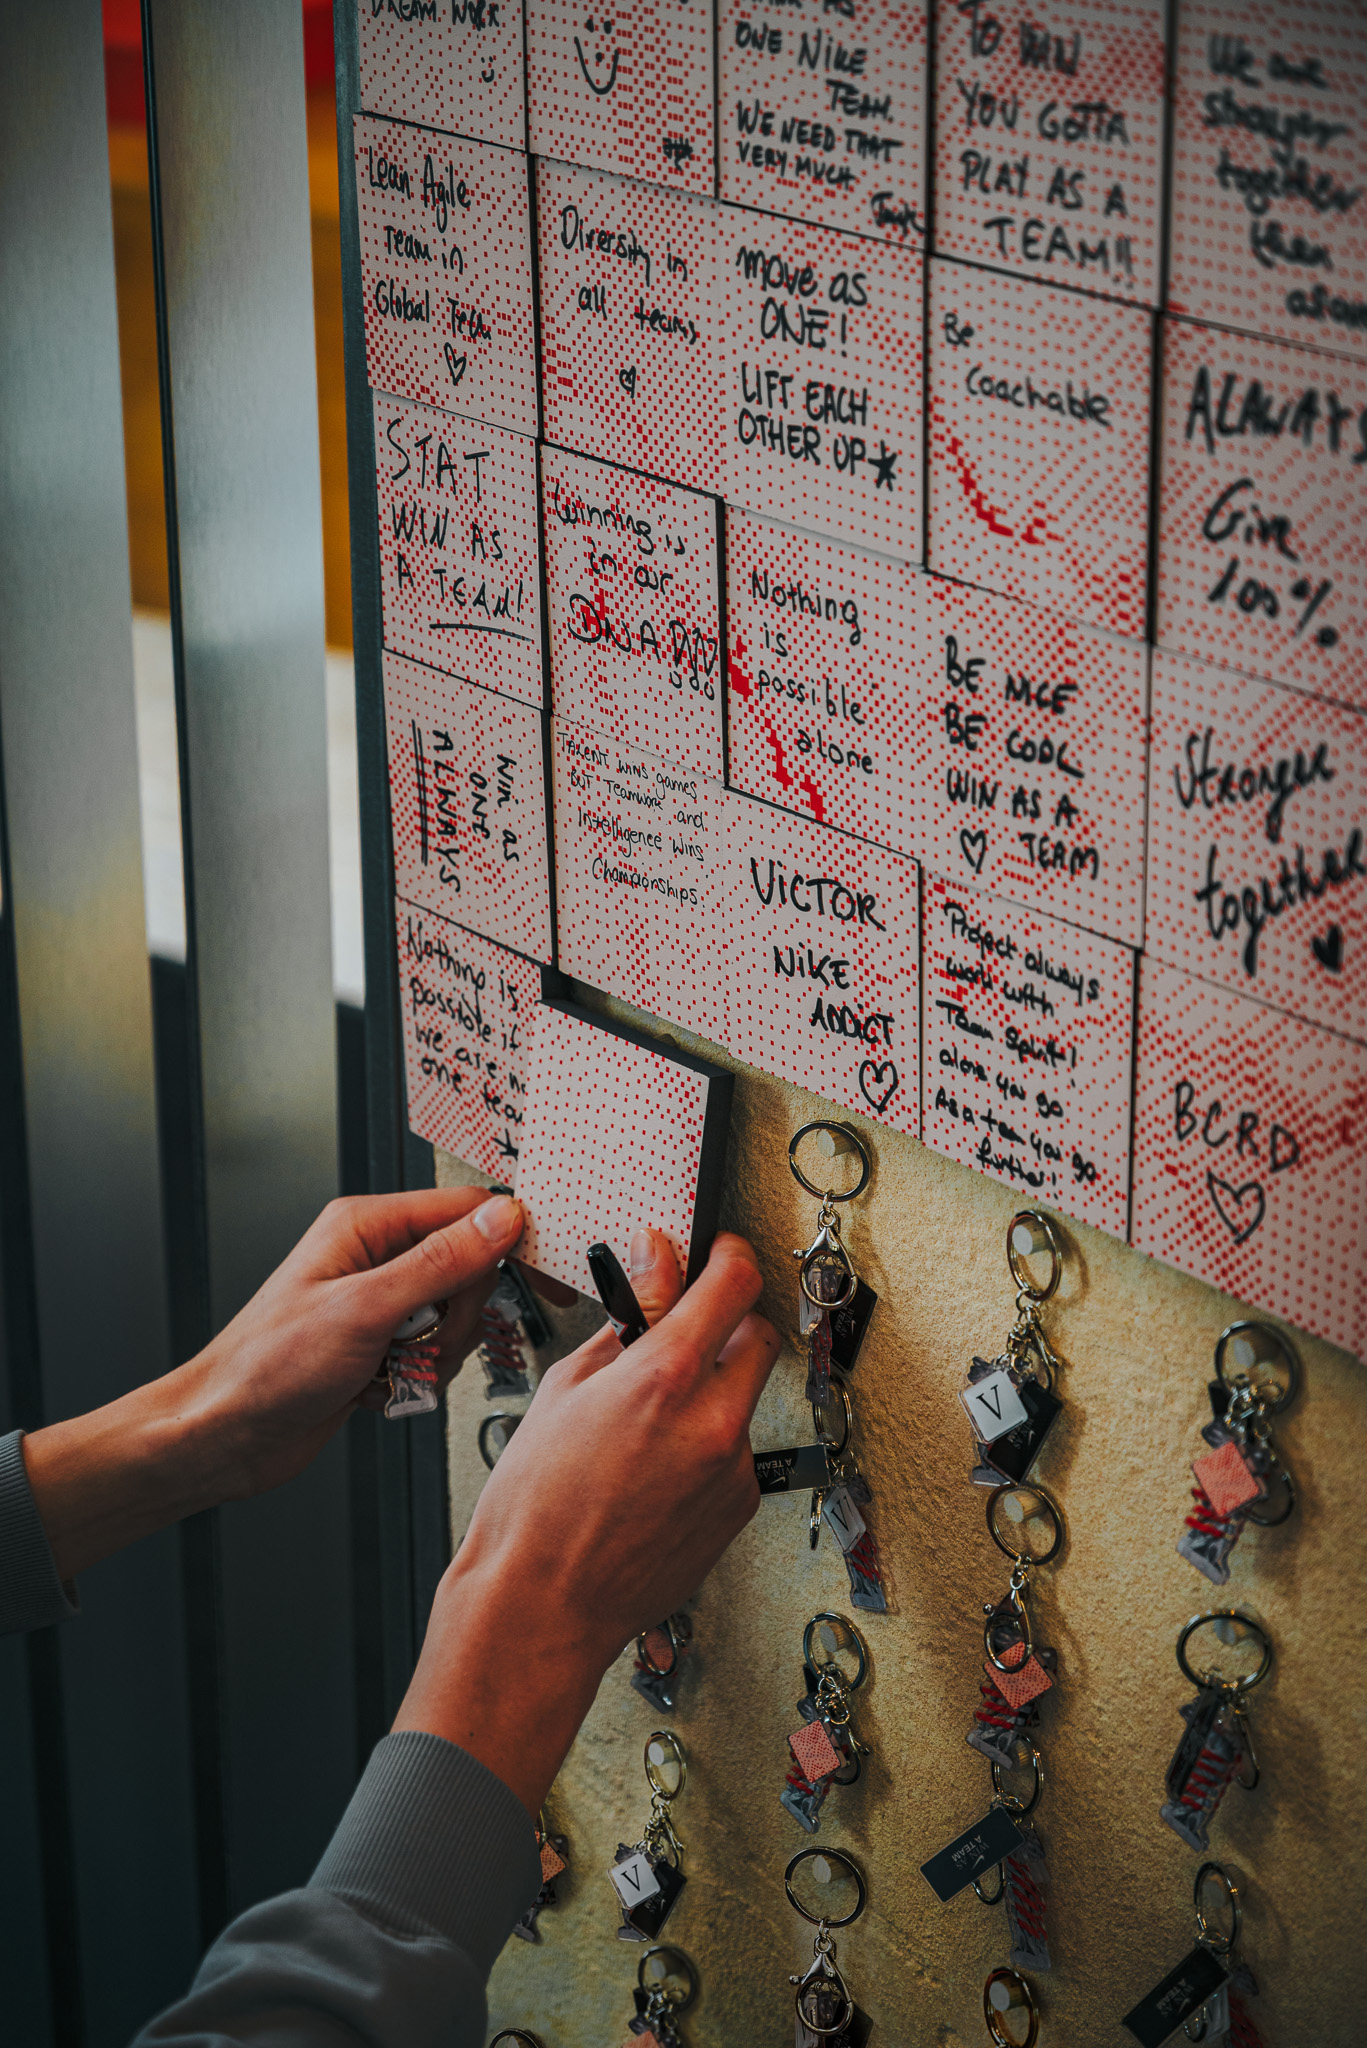 DREAM WORK
ONE NIKE
TEAM.
WE NEED THAT
VERY MUCH
TO WIN
YOU GOTTA
PLAY AS A
TEAM!!
We are
stronger
together
then
alone
Lean Agile
Team in
Global Tech
Diversity in
all teams
MOVE AS
ONE!
LIFT EACH
OTHER UP
Be
Coachable
ALAWAYS
Give
100%
STAT
WIN AS
A TEAM!
Winning is
in our
DNA
Nothing
is
possible
alone
BE NICE
BE COOL
WIN AS A
TEAM
Stronger
together
WiN as
ONE
ALWAYS
TALENT wins games
BUT Teamwork and
Intelligence wins
Championships.
ViCTOR
NiKE
ADDiCT
Project always
work with
Team Spirit!
alone you go
As a team you go
further!
BCRD
Nothing is
possible if
we are no
one team
V
WIN AS
A TEAM
V
WIN AS
A TEAM
V